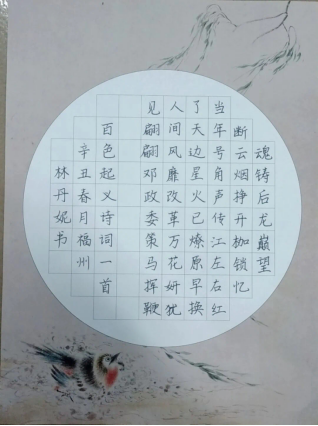 魂铸后龙巅望
断云烟挣开枷锁忆
当年号角声传江左右红
了天边星火已燎原早换
人间风廉改革万花妍犹
见翩翩邓政委策马挥鞭
百色起义诗词一首
辛丑春月福州
林丹妮书